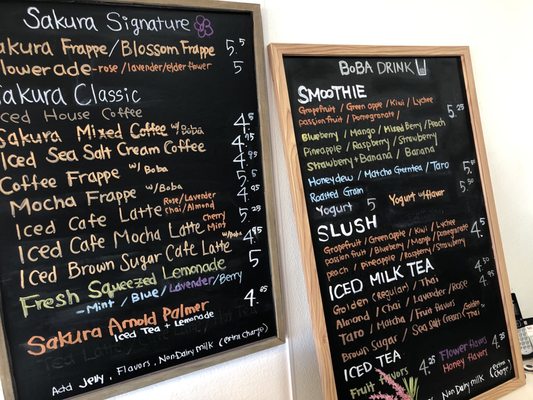 Sakura Signature
Sakura Frappe/Blossom Frappe 5.5
lowerade-rose/lavender/elderflower 5
Sakura Classic
Iced House Coffee
Sakura Mixed Coffee w/Boba 4.5
Iced Sea Salt Cream Coffee
Coffee Frappe w/Boba
Mocha Frappe w/Boba
Iced Cafe Latte Rose/Lavender
chai/Almond
Iced Cafe Mocha Latte Cherry
Mint
Iced Brown Sugar Cafe Latte
Fresh Squeezed Lemonade 5
-Mint/Blue/Lavender/Berry
Sakura Arnold Palmer 4.95
Iced Tea + Lemonade
Add Jelly, Flavors, NonDairy Milk (extra charge)
BOBA DRINK
SMOOTHIE
Grapefruit/Green apple/Kiwi/Lychee
passion fruit/Pomegranate/ 5.25
Blueberry/Mango/Mixed Berry/Peach
Pineapple/Raspberry/Strawberry
Strawberry+Banana/Banana
Honeydew/Matcha Greentea/Taro 5.5
Roasted Grain
Yogurt 5 Yogurt w/flavor 5.5
SLUSH
Grapefruit/Green apple/Kiwi/Lychee
passion fruit/Blueberry/Mango/Pomegranate
peach/Pineapple/Raspberry/Strawberry
ICED MILK TEA
Golden (Regular)/Thai 4.5
Almond/Chai/Lavender/Rose
Taro/Matcha/Fruit flavors
Brown Sugar/Sea Salt Cream
ICED TEA
Fruit flavors 4.25 Flower flavors
Honey flavors
NonDairy Milk (extra charge)